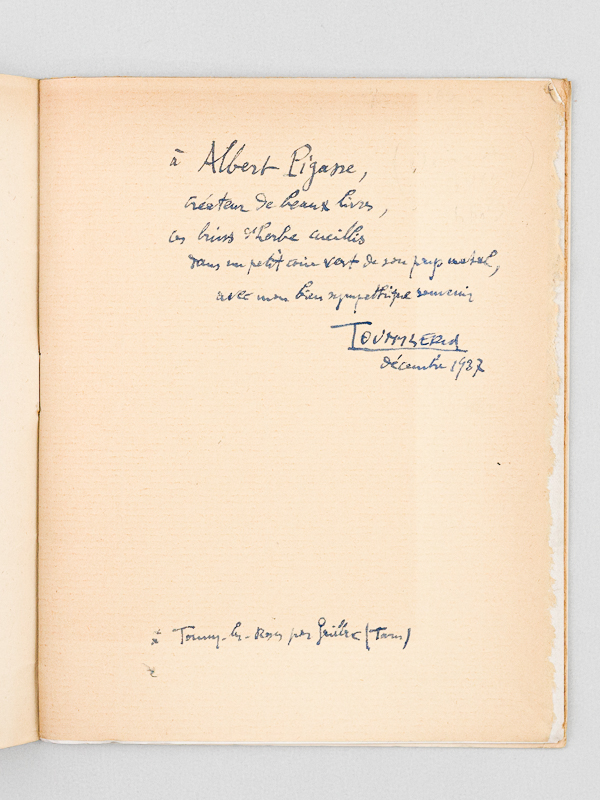 à Albert Pigasse,
créateur de beaux livres,
ces brins d'herbe cueillis
dans un petit coin vert de son pays natal,
avec mon bien sympathique souvenir
décembre 1937
à Tourny-les-Roses par Gaillac (Tarn)